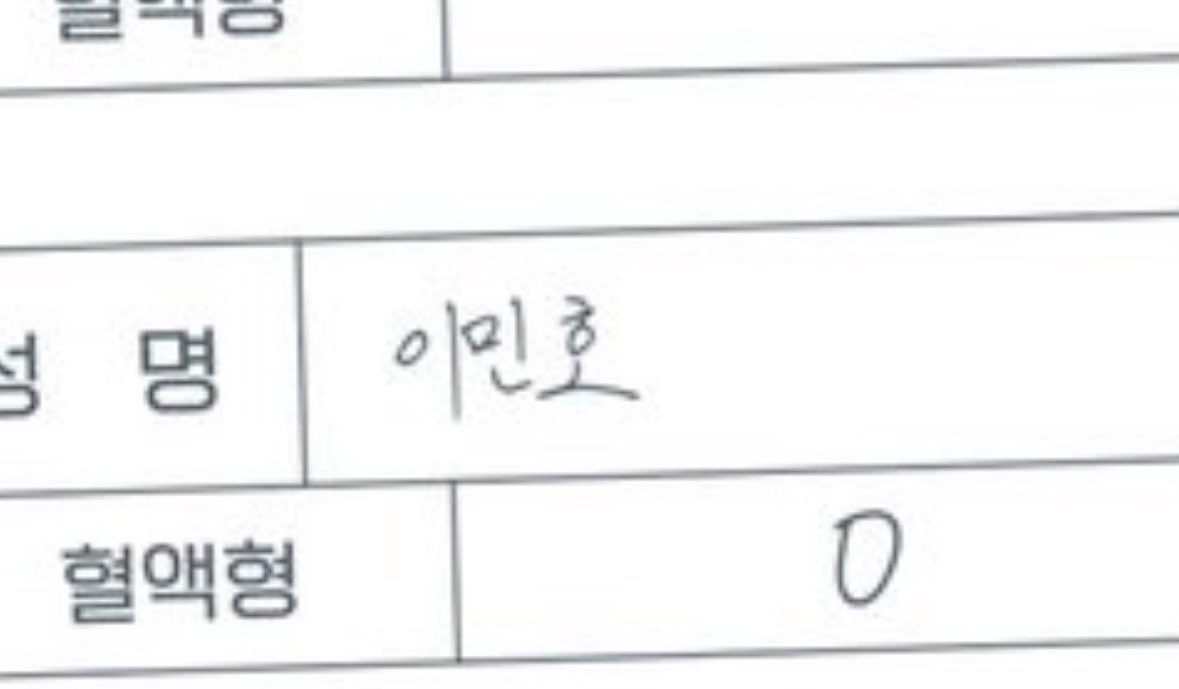 혈액형
성 명 이민호
혈액형 O